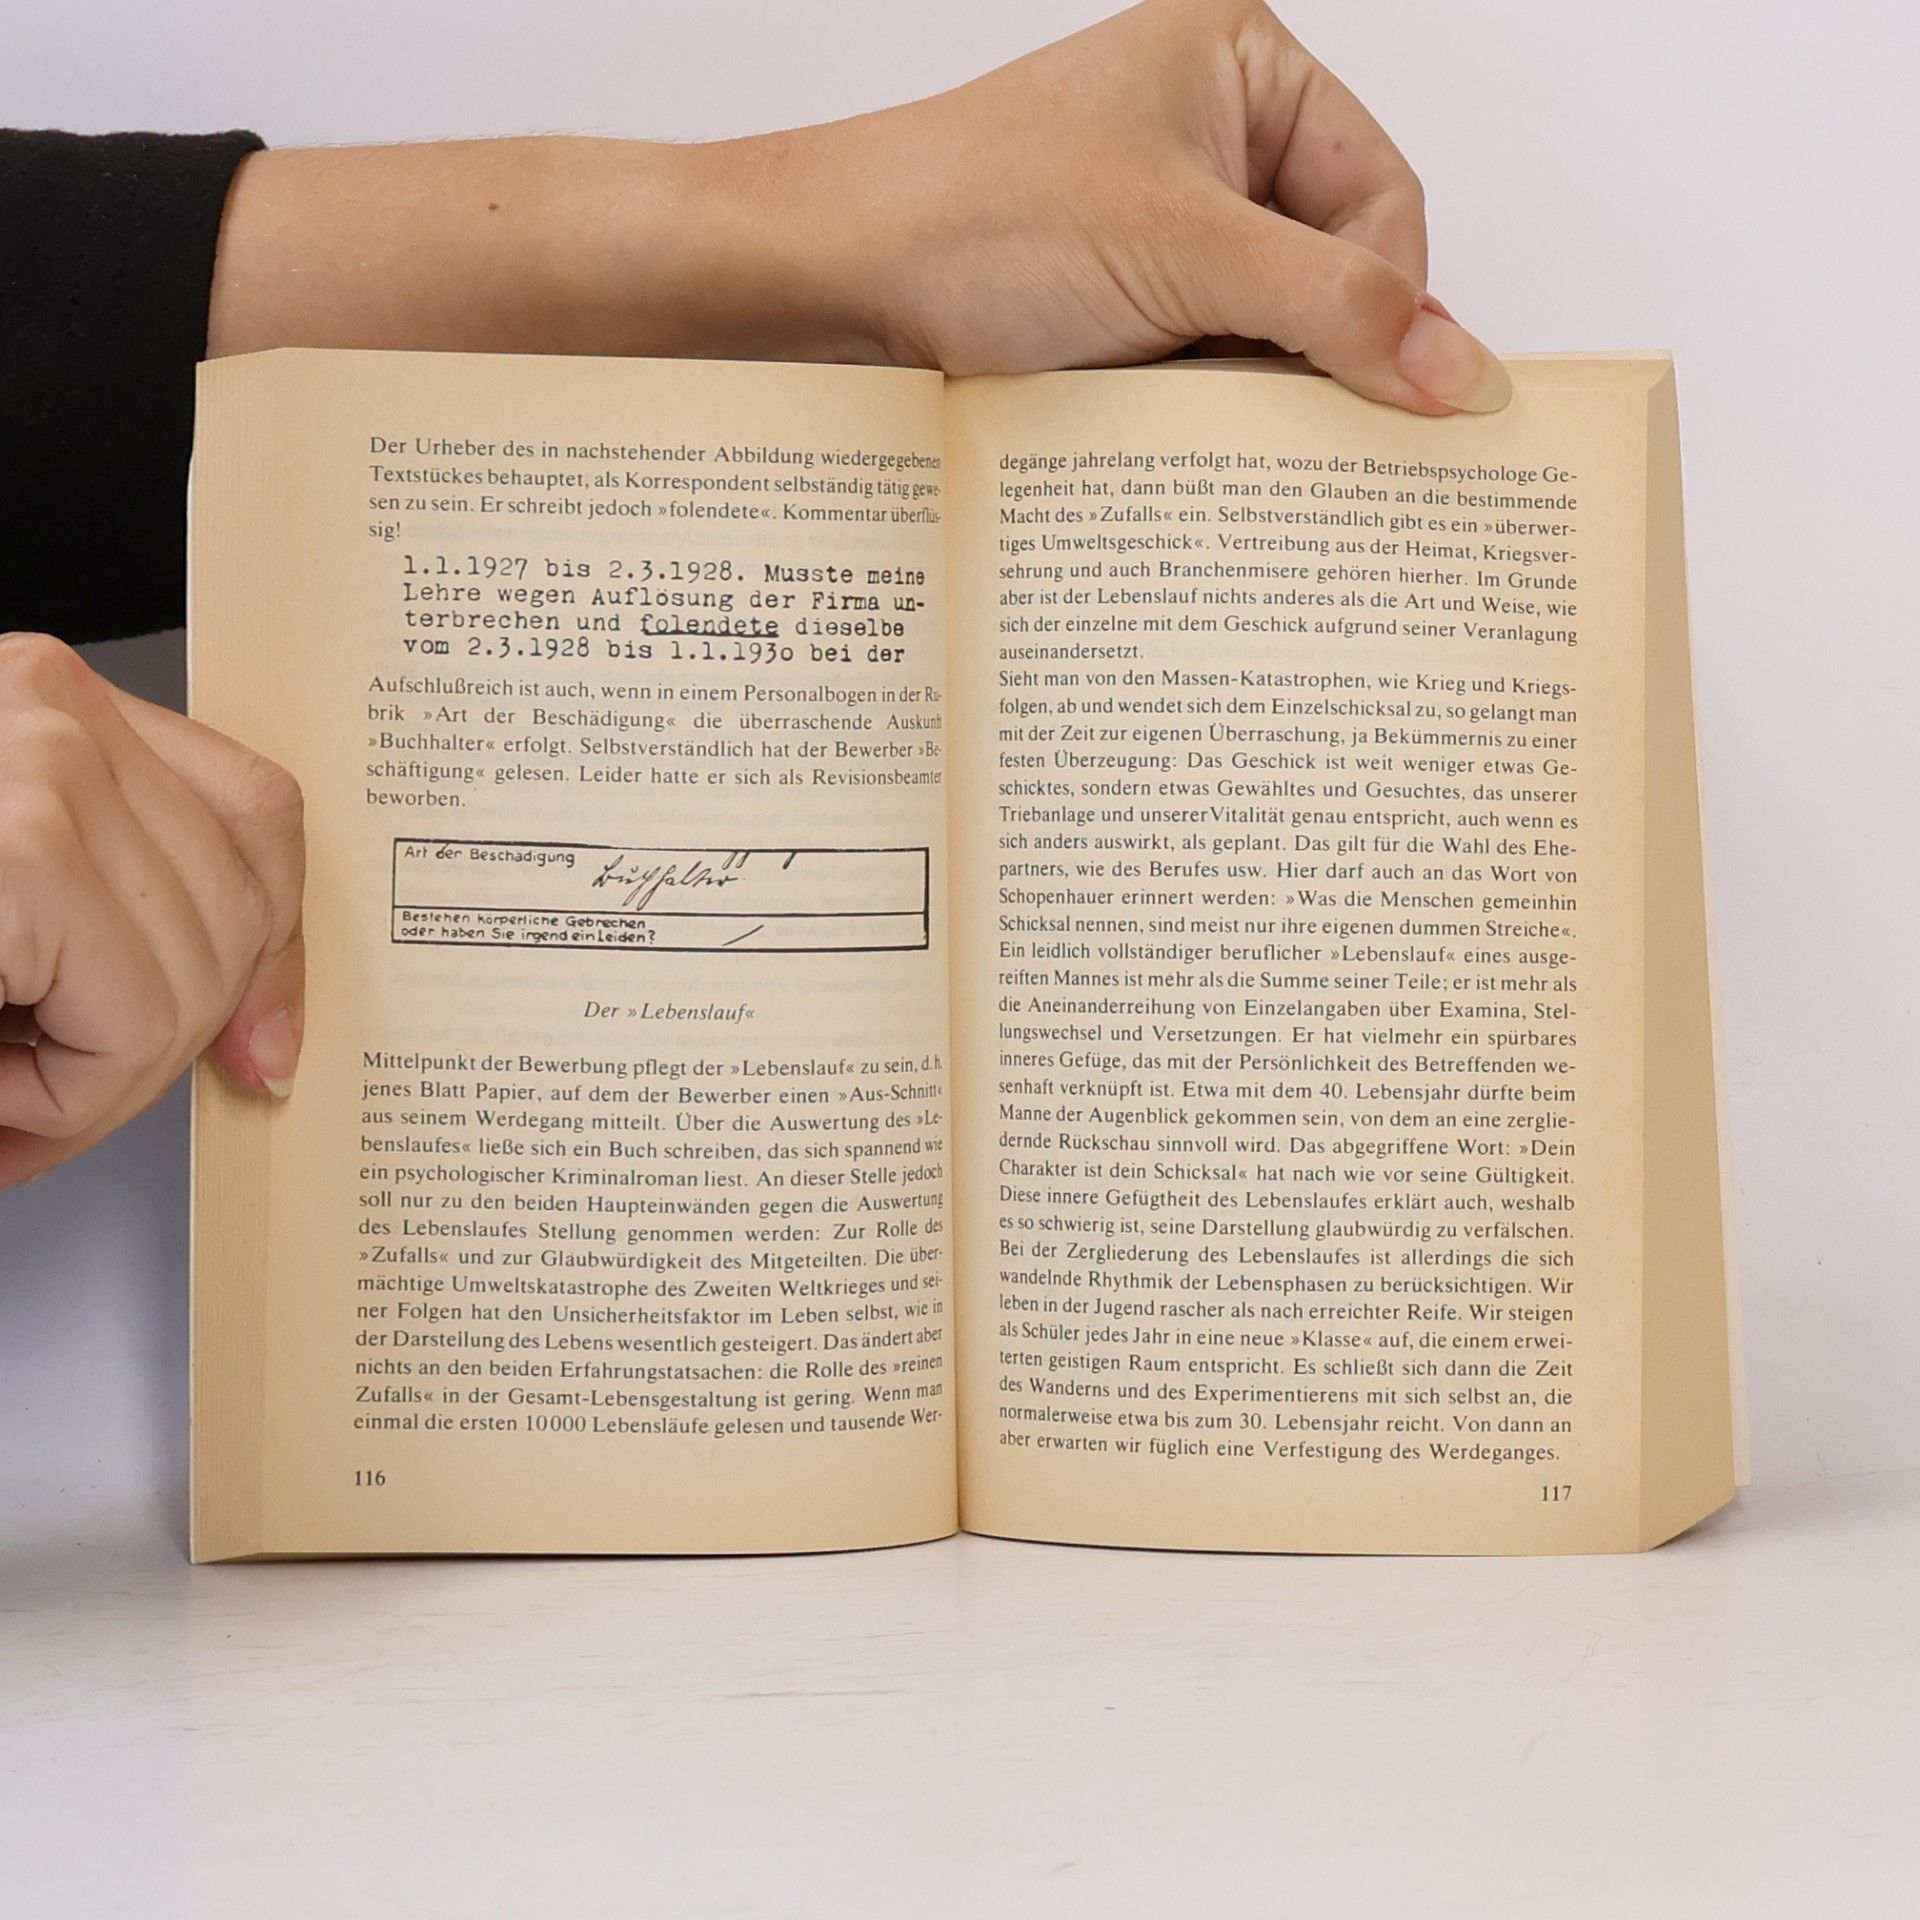 Der Urheber des in nachstehender Abbildung wiedergegebenen
Textstückes behauptet, als Korrespondent selbständig tätig gewe-
sen zu sein. Er schreibt jedoch »folendete«. Kommentar überflüs-
sig!
1.1.1927 bis 2.3.1928. Musste meine
Lehre wegen Auflösung der Firma un-
terbrechen und folendete dieselbe
vom 2.3.1928 bis 1.1.193o bei der
Aufschlußreich ist auch, wenn in einem Personalbogen in der Ru-
brik »Art der Beschädigung« die überraschende Auskunft
»Buchhalter« erfolgt. Selbstverständlich hat der Bewerber »Be-
schäftigung« gelesen. Leider hatte er sich als Revisionsbeamter
beworben.
Art der Beschädigung Buchhalter
Bestehen körperliche Gebrechen
oder haben Sie irgend ein Leiden?
Der »Lebenslauf«
Mittelpunkt der Bewerbung pflegt der »Lebenslauf« zu sein, d.h.
jenes Blatt Papier, auf dem der Bewerber einen »Aus-Schnitt«
aus seinem Werdegang mitteilt. Über die Auswertung des »Le-
benslaufes« ließe sich ein Buch schreiben, das sich spannend wie
ein psychologischer Kriminalroman liest. An dieser Stelle jedoch
soll nur zu den beiden Haupteinwänden gegen die Auswertung
des Lebenslaufes Stellung genommen werden: Zur Rolle des
»Zufalls« und zur Glaubwürdigkeit des Mitgeteilten. Die über-
mächtige Umweltskatastrophe des Zweiten Weltkrieges und sei-
ner Folgen hat den Unsicherheitsfaktor im Leben selbst, wie in
der Darstellung des Lebens wesentlich gesteigert. Das ändert aber
nichts an den beiden Erfahrungstatsachen: die Rolle des »reinen
Zufalls« in der Gesamt-Lebensgestaltung ist gering. Wenn man
einmal die ersten 10000 Lebensläufe gelesen und tausende Wer-
116
degänge jahrelang verfolgt hat, wozu der Betriebspsychologe Ge-
legenheit hat, dann büßt man den Glauben an die bestimmende
Macht des »Zufalls« ein. Selbstverständlich gibt es ein »überwer-
tiges Umweltsgeschick«. Vertreibung aus der Heimat, Kriegsver-
sehrung und auch Branchenmisere gehören hierher. Im Grunde
aber ist der Lebenslauf nichts anderes als die Art und Weise, wie
sich der einzelne mit dem Geschick aufgrund seiner Veranlagung
auseinandersetzt.
Sieht man von den Massen-Katastrophen, wie Krieg und Kriegs-
folgen, ab und wendet sich dem Einzelschicksal zu, so gelangt man
mit der Zeit zur eigenen Überraschung, ja Bekümmernis zu einer
festen Überzeugung: Das Geschick ist weit weniger etwas Ge-
schicktes, sondern etwas Gewähltes und Gesuchtes, das unserer
Triebanlage und unserer Vitalität genau entspricht, auch wenn es
sich anders auswirkt, als geplant. Das gilt für die Wahl des Ehe-
partners, wie des Berufes usw. Hier darf auch an das Wort von
Schopenhauer erinnert werden: »Was die Menschen gemeinhin
Schicksal nennen, sind meist nur ihre eigenen dummen Streiche«.
Ein leidlich vollständiger beruflicher »Lebenslauf« eines ausge-
reiften Mannes ist mehr als die Summe seiner Teile; er ist mehr als
die Aneinanderreihung von Einzelangaben über Examina, Stel-
lungswechsel und Versetzungen. Er hat vielmehr ein spürbares
inneres Gefüge, das mit der Persönlichkeit des Betreffenden we-
senhaft verknüpft ist. Etwa mit dem 40. Lebensjahr dürfte beim
Manne der Augenblick gekommen sein, von dem an eine zerglie-
dernde Rückschau sinnvoll wird. Das abgegriffene Wort: »Dein
Charakter ist dein Schicksal« hat nach wie vor seine Gültigkeit.
Diese innere Gefügtheit des Lebenslaufes erklärt auch, weshalb
es so schwierig ist, seine Darstellung glaubwürdig zu verfälschen.
Bei der Zergliederung des Lebenslaufes ist allerdings die sich
wandelnde Rhythmik der Lebensphasen zu berücksichtigen. Wir
leben in der Jugend rascher als nach erreichter Reife. Wir steigen
als Schüler jedes Jahr in eine neue »Klasse« auf, die einem erwei-
terten geistigen Raum entspricht. Es schließt sich dann die Zeit
des Wanderns und des Experimentierens mit sich selbst an, die
normalerweise etwa bis zum 30. Lebensjahr reicht. Von dann an
aber erwarten wir füglich eine Verfestigung des Werdeganges.
117